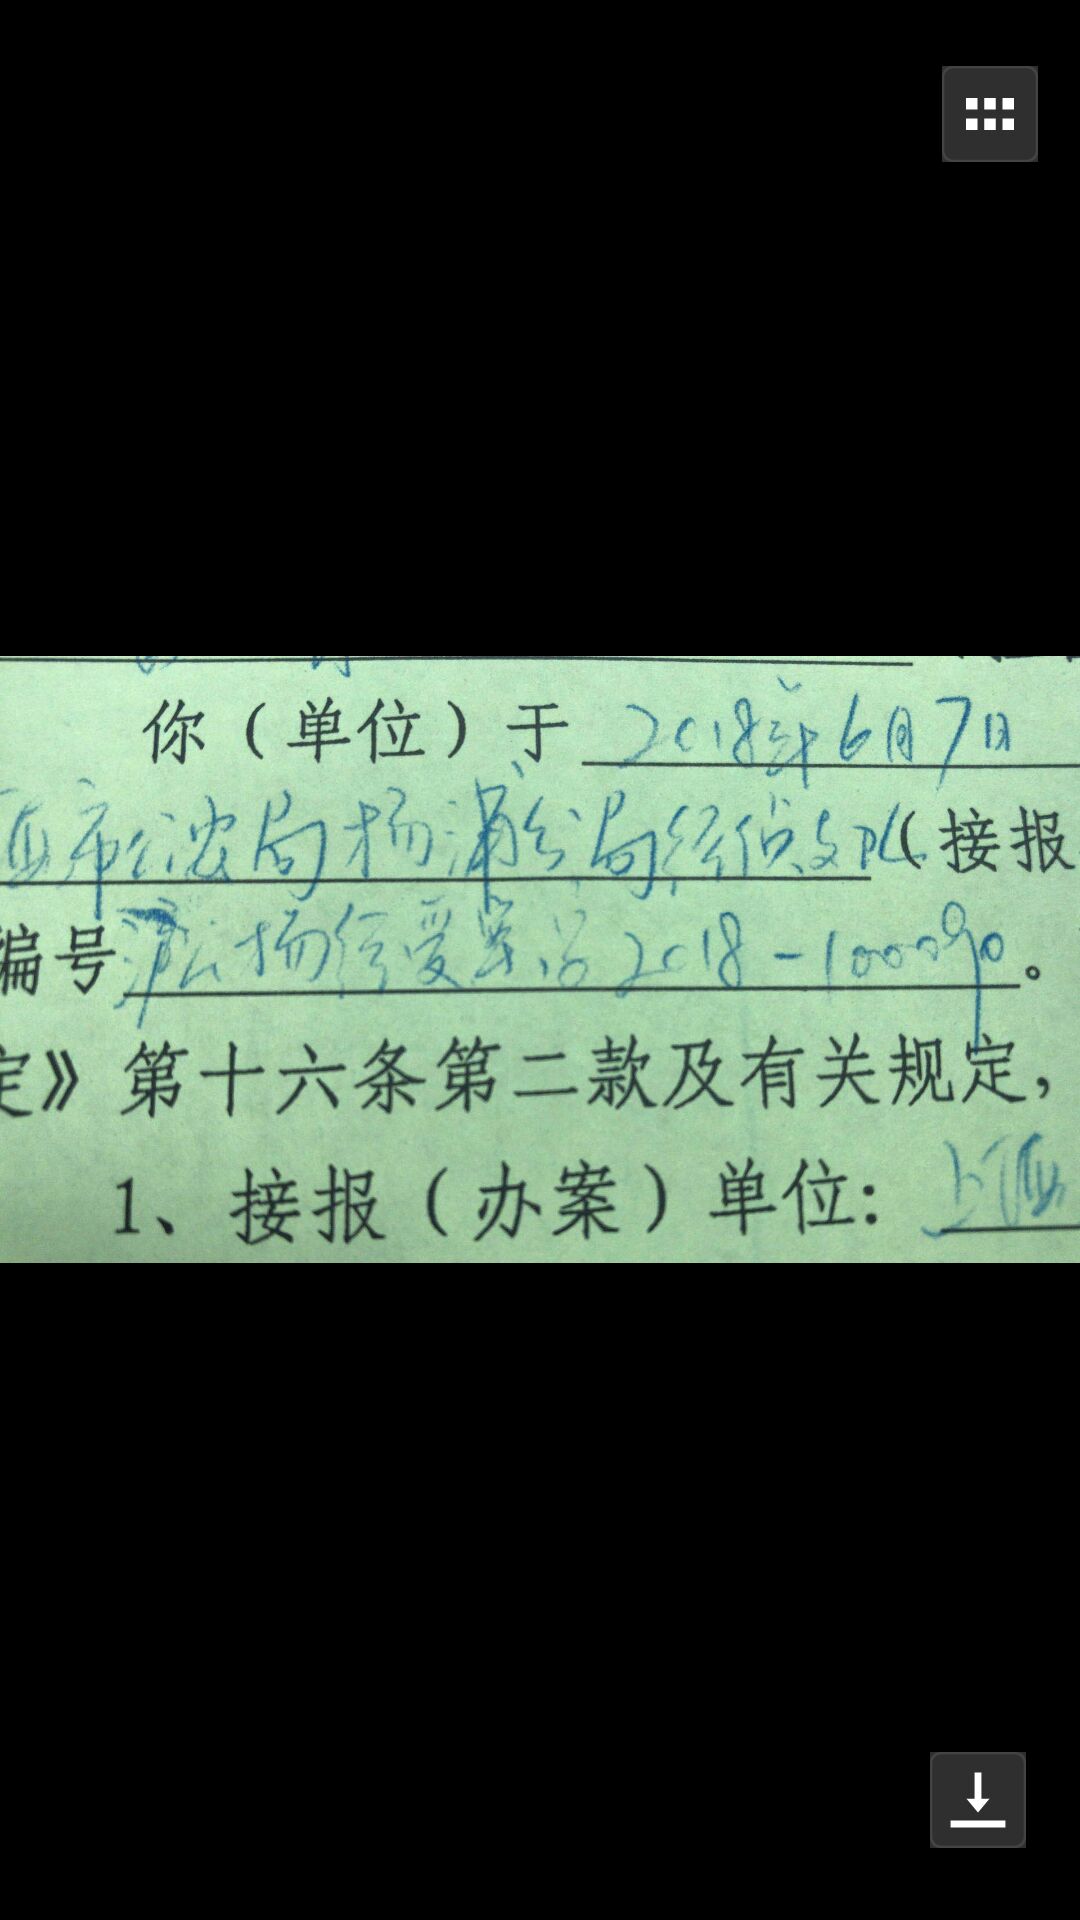 你（单位）于 2018年6月7日
海市公安局杨浦分局经侦支队（接报
编号 沪公杨经受案字2018-1000090。
定》第十六条第二款及有关规定，
1、接报（办案）单位：上海